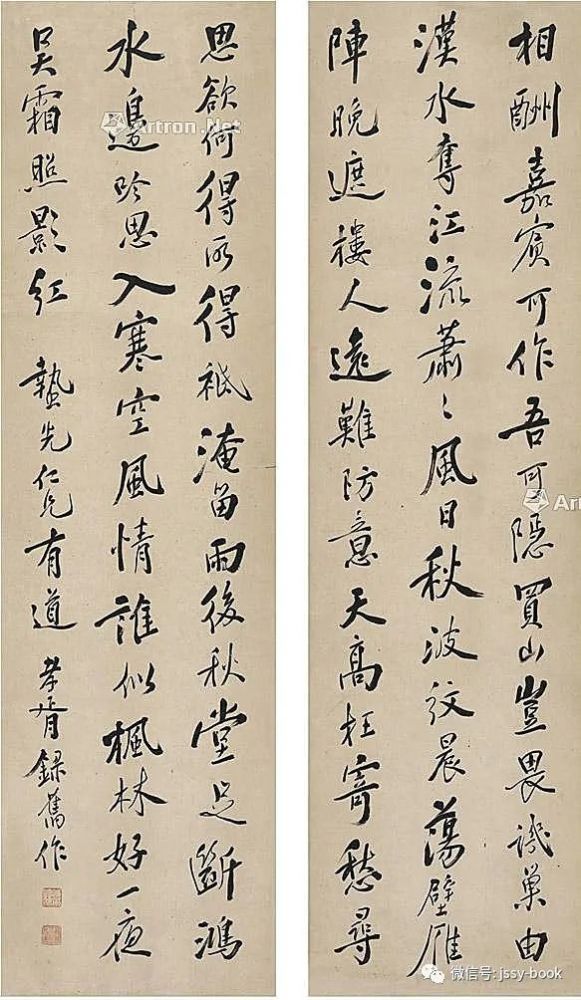 相酬嘉賓可作吾可隱買山豈畏譏巢由
漢水奪江流蕭〻風日秋波紋晨蕩壁雁
陣晚遮樓人遠難防意天高枉寄愁尋
思欲何得所得祇淹留雨後秋堂足斷鴻
水邊吟思入寒空風情誰似楓林好一夜
吳霜照影紅 蟄先仁兄有道 孝胥錄舊作
Artron.Net
微信号: jssy-book